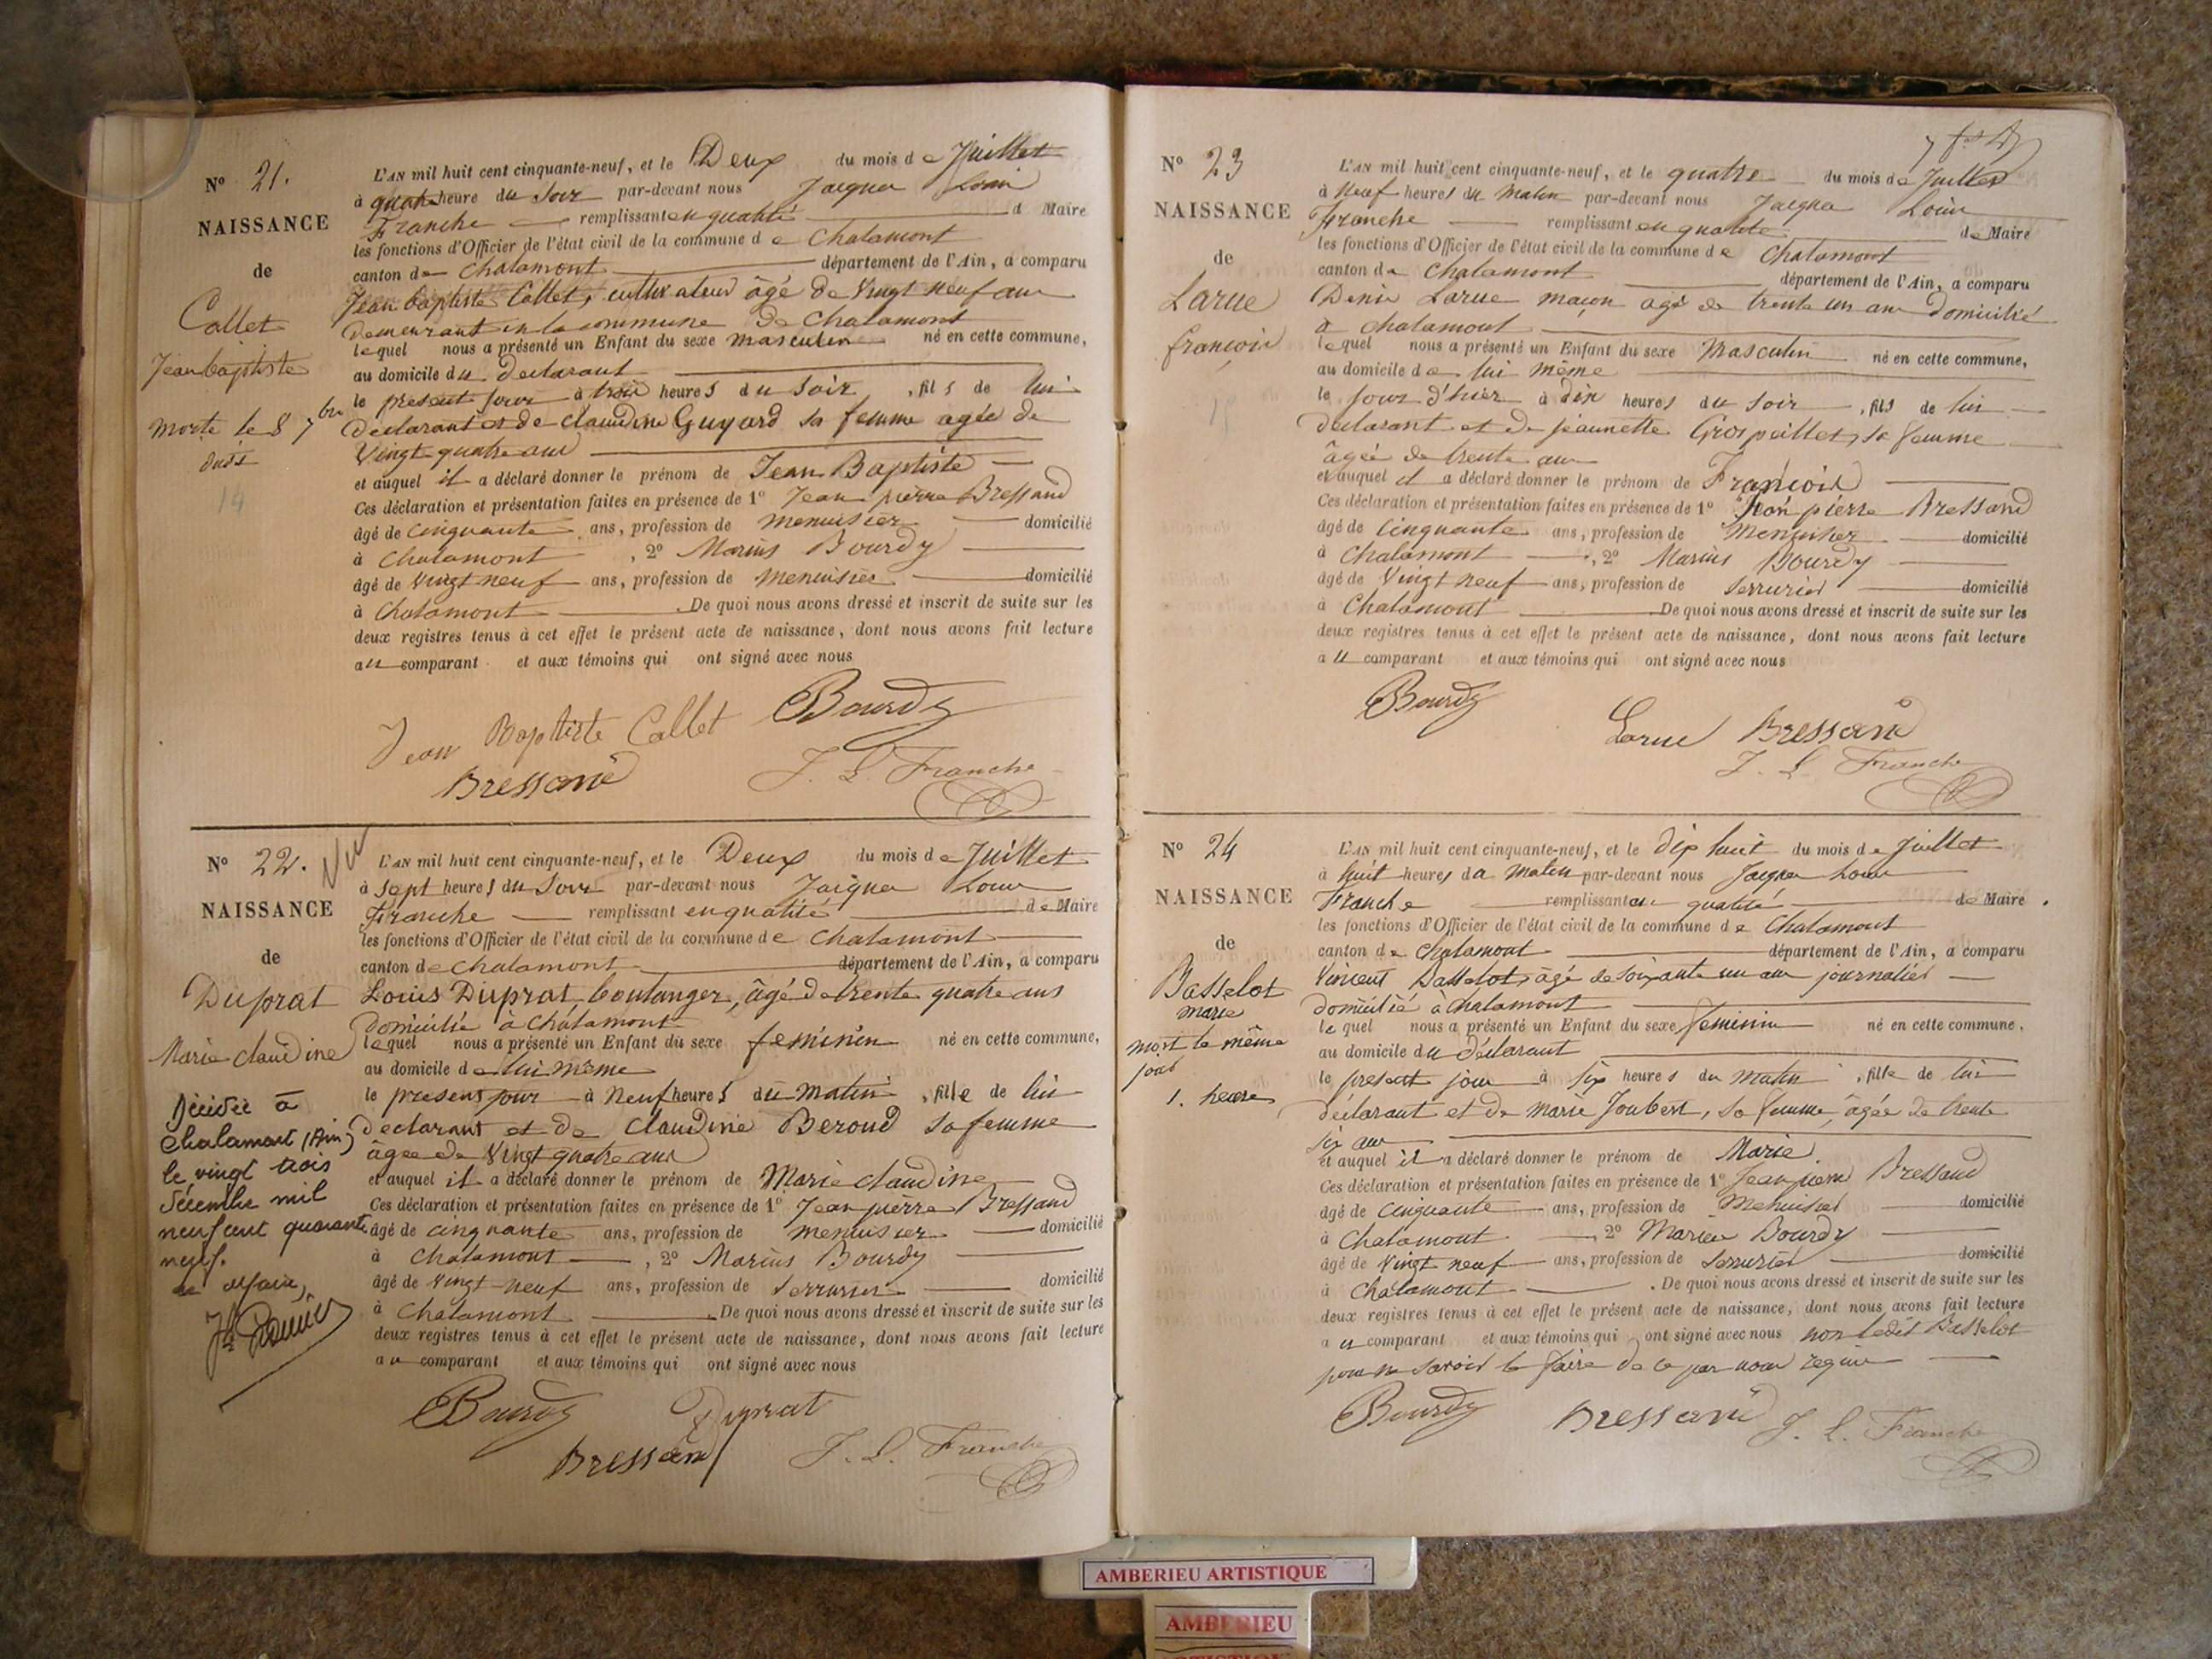 N° 21.
NAISSANCE
de
Collet
Jean baptiste
morte le 8 7bre
dudit
14
L'AN mil huit cent cinquante-neuf, et le Deux du mois de Juillet
à quatre heure du Soir par-devant nous Jacques Louis
Franche remplissant en qualité d Maire
les fonctions d'Officier de l'état civil de la commune de Chalamont
canton de Chalamont département de l'Ain, a comparu
Jean baptiste Collet, cultivateur âgé de Vingt neuf ans
Demeurant en la commune De Chalamont
lequel nous a présenté un Enfant du sexe masculin né en cette commune,
au domicile du Declarant
le present jour à trois heures du soir, fils de lui
Declarant et de claudine Guyard sa femme agée de
Vingt quatre ans
et auquel il a déclaré donner le prénom de Jean Baptiste
Ces déclaration et présentation faites en présence de 1° Jean pierre Bressand
âgé de cinquante ans, profession de menuisier domicilié
à Chalamont, 2° Marius Bourdy
âgé de Vingt neuf ans, profession de menuisier domicilié
à Chalamont De quoi nous avons dressé et inscrit de suite sur les
deux registres tenus à cet effet le présent acte de naissance, dont nous avons fait lecture
au comparant et aux témoins qui ont signé avec nous
Jean Baptiste Collet Bourdy
Bressand J. L. Franche
N° 22. Nu
NAISSANCE
de
Duprat
Marie claudine
Décidée à
Chalamont (Ain)
le vingt trois
décembre mil
neuf cent quarante
neuf.
Le Maire,
L'AN mil huit cent cinquante-neuf, et le Deux du mois de Juillet
à sept heures du Soir par-devant nous Jacques Louis
Franche remplissant en qualité de Maire
les fonctions d'Officier de l'état civil de la commune de Chalamont
canton de Chalamont département de l'Ain, a comparu
Louis Duprat, boulanger, âgé de trente quatre ans
Domicilié à Chalamont
lequel nous a présenté un Enfant du sexe feminin né en cette commune,
au domicile de lui même
le present jour à Neuf heures du matin, fille de lui
declarant et de claudine Beroud sa femme
âgée de Vingt quatre ans
et auquel il a déclaré donner le prénom de Marie claudine
Ces déclaration et présentation faites en présence de 1° Jean pierre Bressand
âgé de cinquante ans, profession de menuisier domicilié
à Chalamont, 2° Marius Bourdy
âgé de Vingt-neuf ans, profession de Serrurier domicilié
à Chalamont De quoi nous avons dressé et inscrit de suite sur les
deux registres tenus à cet effet le présent acte de naissance, dont nous avons fait lecture
au comparant et aux témoins qui ont signé avec nous
Bourdy Duprat
Bressand J. L. Franche
N° 23
NAISSANCE
de
Larue
françois
L'AN mil huit cent cinquante-neuf, et le quatre du mois de Juillet
à Neuf heures du Matin par-devant nous Jacques Louis
Franche remplissant en qualité de Maire
les fonctions d'Officier de l'état civil de la commune de Chalamont
canton de Chalamont département de l'Ain, a comparu
Denis Larue maçon agé de trente un ans Domicilié
à chalamont
lequel nous a présenté un Enfant du sexe Masculin né en cette commune,
au domicile de lui même
le jour d'hier à dix heures du soir, fils de lui
declarant et de jeannette Grospeillet, sa femme
âgée de trente ans
et auquel il a déclaré donner le prénom de François
Ces déclaration et présentation faites en présence de 1° Jean pierre Bressand
âgé de cinquante ans, profession de Menuisier domicilié
à Chalamont, 2° Marius Bourdy
âgé de Vingt neuf ans, profession de Serrurier domicilié
à Chalamont De quoi nous avons dressé et inscrit de suite sur les
deux registres tenus à cet effet le présent acte de naissance, dont nous avons fait lecture
au comparant et aux témoins qui ont signé avec nous
Bourdy
Larue Bressand
J. L. Franche
N° 24
NAISSANCE
de
Basselot
marie
mort le même
jour
1. heure
L'AN mil huit cent cinquante-neuf, et le dix huit du mois de Juillet
à huit heures du Matin par-devant nous Jacques Louis
Franche remplissant en qualité de Maire.
les fonctions d'Officier de l'état civil de la commune de Chalamont
canton de Chalamont département de l'Ain, a comparu
Vincent Basselot, âgé de soixante un ans journalier
domicilié à Chalamont
lequel nous a présenté un Enfant du sexe feminin né en cette commune,
au domicile du déclarant
le present jour à six heures du matin, fille de lui
déclarant et de marie Joubert, sa femme, âgée de trente
six ans
et auquel il a déclaré donner le prénom de Marie
Ces déclaration et présentation faites en présence de 1° Jean pierre Bressand
âgé de cinquante ans, profession de Menuisier domicilié
à Chalamont 2° Marius Bourdy
âgé de Vingt neuf ans, profession de Serrurier domicilié
à Chalamont. De quoi nous avons dressé et inscrit de suite sur les
deux registres tenus à cet effet le présent acte de naissance, dont nous avons fait lecture
au comparant et aux témoins qui ont signé avec nous non ledit Basselot
pour ne savoir le faire de ce par nous requis
Bourdy Bressand J. L. Franche
AMBERIEU ARTISTIQUE
AMBERIEU
ARTISTIQUE